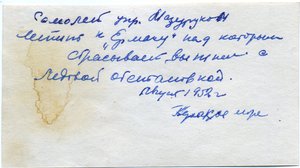 Самолет упр. Мазуруком
летит к "Ермаку" над которым
сбрасывает вымпел с
ледовой обстановкой.
Август 1952 г
Карское море